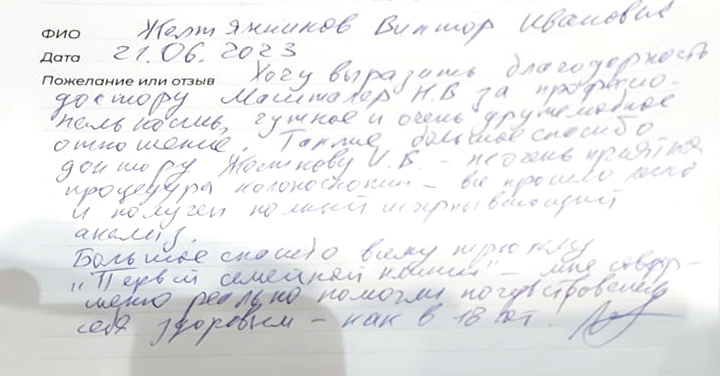 ФИО Желтянников Виктор Иванович
Дата 21.06.2023
Пожелание или отзыв Хочу выразить благодарность
доктору Машталер Н.В за професио-
нальность, чуткое и очень дружелюбное
отношение. Также большое спасибо
доктору И.В. – не очень приятная
процедура колоноскопии – все прошло легко
и получен полный исчерпывающий
анализ.
Большое спасибо всему персоналу
"Первой семейной клиники" – мне совер-
шенно реально помогли почувствовать
себя здоровым – как в 18 лет.